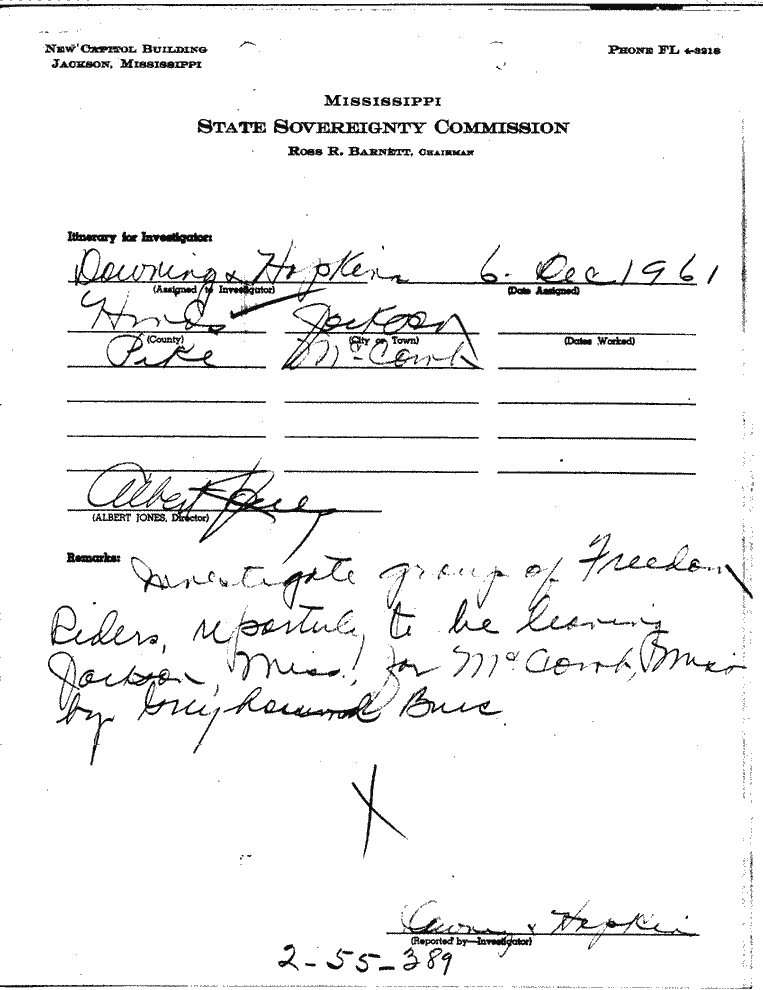 NEW CAPITOL BUILDING
JACKSON, MISSISSIPPI
PHONE FL 4-3218
MISSISSIPPI
STATE SOVEREIGNTY COMMISSION
ROSS R. BARNETT, CHAIRMAN
Itinerary for Investigator:
Downing & Hopkins 6 Dec 1961
(Assigned to Investigator) (Date Assigned)
Hinds Jackson
(County) (City or Town) (Dates Worked)
Pike McComb
Albert Jones
(ALBERT JONES, Director)
Remarks: Investigate group of Freedom
Riders, reportedly to be leaving
Jackson, Miss. for McComb, Miss
by Greyhound Bus
X
Downing & Hopkins
(Reported by—Investigator)
2-55-389